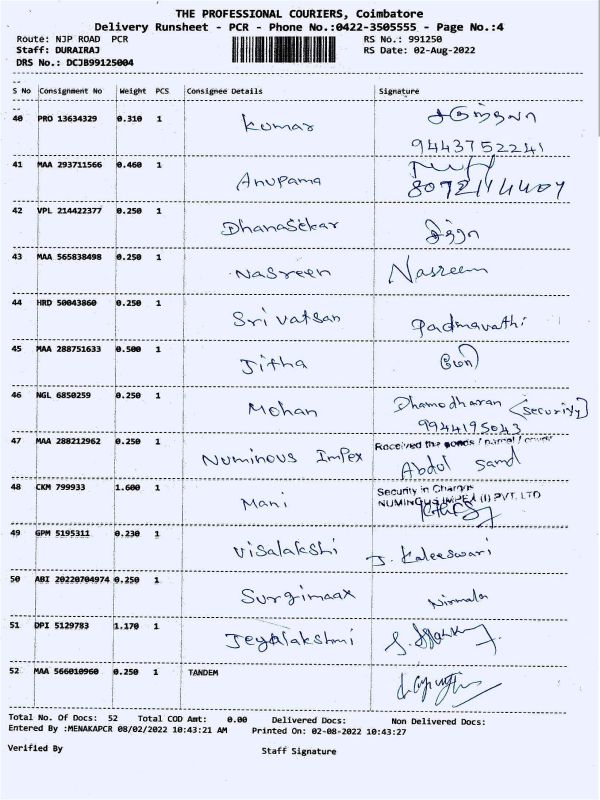 THE PROFESSIONAL COURIERS, Coimbatore
Delivery Runsheet - PCR - Phone No.:0422-3505555 - Page No.:4
Route: NJP ROAD PCR RS No.: 991250
Staff: DURAIRAJ RS Date: 02-Aug-2022
DRS No.: DCJB99125004
S No Consignment No Weight PCS Consignee Details Signature
40 PRO 13634329 0.310 1 Kumar
9443752241
41 MAA 293711566 0.460 1 Anupama
42 VPL 214422377 0.250 1 Dhanasekar
43 MAA 565838498 0.250 1 Nasreen Nasreem
44 HRD 50043860 0.250 1 Srivatsan Padmavathi
45 MAA 288751633 0.500 1 Jitha
46 NGL 6850259 0.250 1 Mohan Dhamodharan (security)
9944195043
47 MAA 288212962 0.250 1 Numinous Impex Received the goods / parcel / cover
Abdul Samd
48 CKM 799933 1.600 1 Mani Security in Charge
NUMINOUS IMPEX (I) PVT. LTD
49 GPM 5195311 0.230 1 Visalakshi J. Kaleeswari
50 ABI 20220704974 0.250 1 Surgimaax Nirmala
51 DPI 5129783 1.170 1 Jeyalakshmi
52 MAA 566010960 0.250 1 TANDEM
Total No. Of Docs: 52 Total COD Amt: 0.00 Delivered Docs: Non Delivered Docs:
Entered By :MENAKAPCR 08/02/2022 10:43:21 AM Printed On: 02-08-2022 10:43:27
Verified By Staff Signature